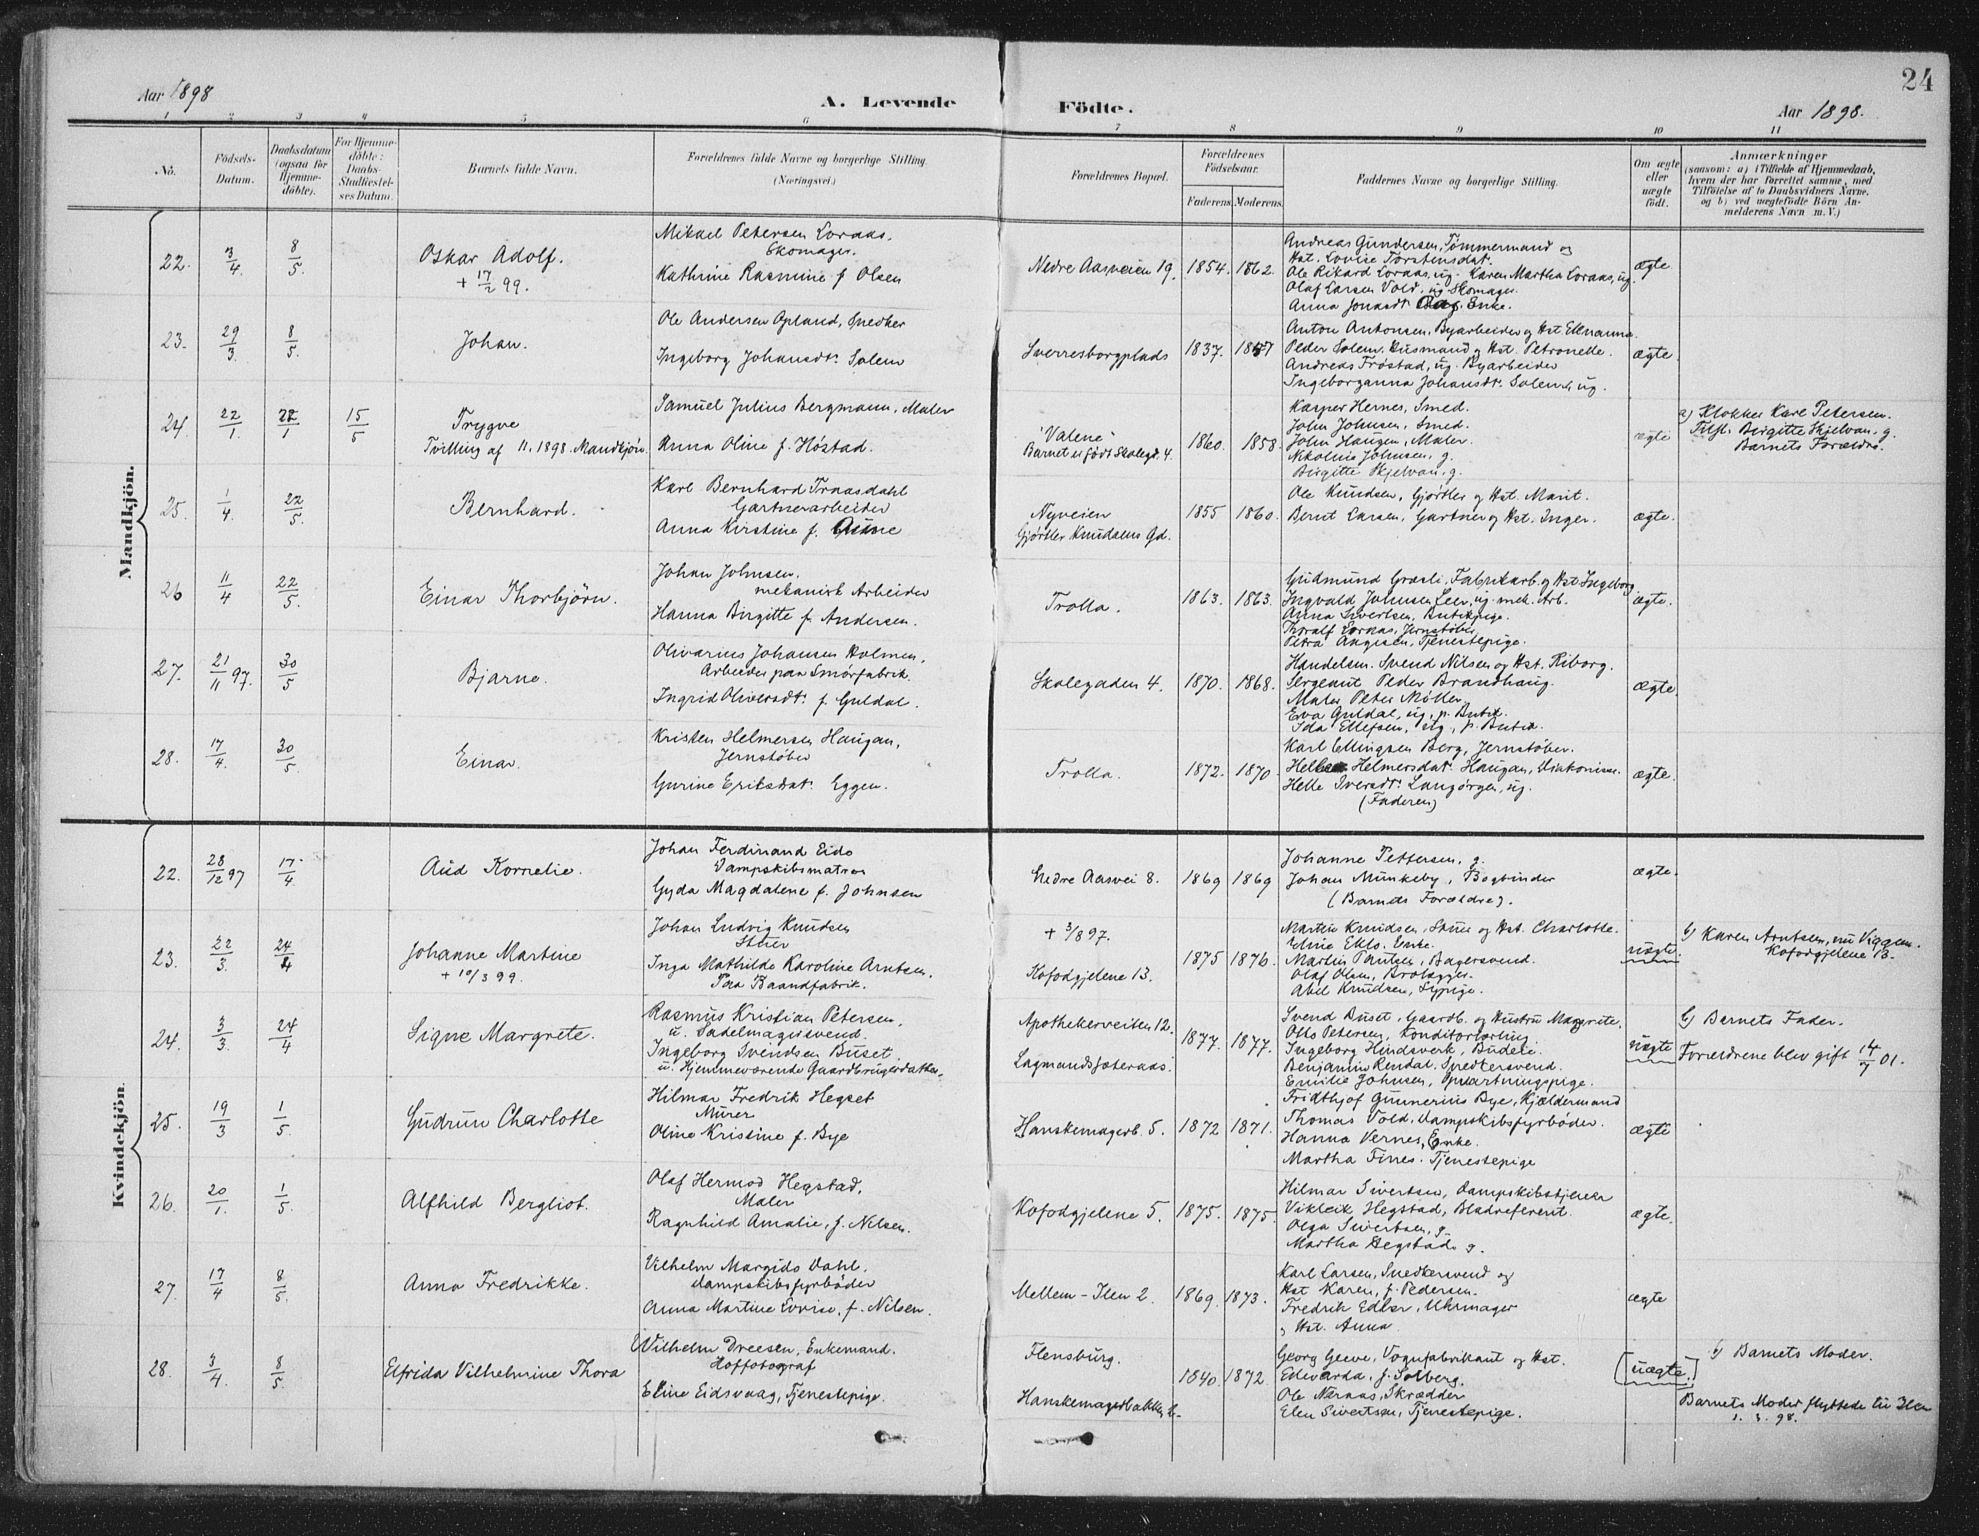 24
Aar 1898
A. Levende
Födte.
Aar 1898.
1 2 3 4 5 6 7 8 9 10 11
No.
Födsels-
Datum.
Daabsdatum
(ogsaa for
Hjemme-
döbte).
For Hjemme-
döbte:
Daabs-
Stadfæstel-
ses Datum.
Barnets fulde Navn.
Forældrenes fulde Navne og borgerlige Stilling.
(Næringsvei.)
Forældrenes Bopæl.
Forældrenes
Födselsaar.
Faderens. Moderens.
Faddernes Navne og borgerlige Stilling.
Om ægte
eller
uægte
födt.
Anmærkninger
(saasom: a) i Tilfælde af Hjemmedaab,
hvem der har forrettet samme, med
Tilföielse af to Daabsvidners Navne,
og b) ved uægtefödte Börn An-
melderens Navn m. V.)
Mandkjön.
22. 3/4 8/5
Oskar Adolf.
+ 17/2 99.
Mikael Petersen Loraas,
Skomager.
Kathrine Rasmine f. Olsen
Nedre Aasveien 19. 1854. 1862.
Andreas Gundersen, Tømmermand og
Hst. Lovise Torstensdat.
Ole Rikard Loraas, ug. Karen Martha Loraas, ug.
Olaf Larsen Vold, ug Skomager.
Anna Jonasdt. Enke.
ægte
23. 29/3 8/5
Johan.
Ole Andersen Opland, Snedker
Ingeborg Johansdt. Solem
Sverresborgplads 1837. 1857
Anton Antonsen, Byarbeider og Hst Ellenanna
Peder Solem, Husmand og Hst. Petronelle.
Andreas Frøstad, ug. Byarbeider
Ingeborganna Johansdt. Solem, ug.
ægte
24. 22/1. 22/1 15/5
Trygve
Tvilling af 11. 1898. Mandkjön.
Samuel Julius Bergmann, Maler
Anna Oline f. Høstad.
"Valene"
Barnet er født Skolegd. 4.
1860. 1858.
Kasper Hernes, Smed.
John Johnsen, Smed.
John Haugen, Maler.
Nikoline Johnsen, g.
Birgitte Skjelvan, g.
ægte
a) Klokker Karl Petersen.
Tilst. Birgitte Skjelvan. g.
Barnets Forældre.
25. 1/4 22/5.
Bernhard.
Karl Bernhard Traasdahl
Gartnerarbeider
Anna Kirstine f. Aune
Nyveien
Gjørtler Knudsens Gd.
1855 1860.
Ole Knudsen, Gjørtler og Hst. Marit.
Bernt Larsen, Gartner og Hst. Inger.
ægte.
26 11/4 22/5.
Einar Thorbjörn.
Johan Johnsen,
mekanisk Arbeider
Hanna Birgitte f. Andersen.
Trolla. 1863. 1863.
Gudmund Græsli, Fabrikarb. og Hst Ingeborg
Ingvald Johnsen Leer, ug. mek. Arb.
Anna Sivertsen, Butikpige.
Thoralf Loraas, Jernstøber
Petra Angesen, Tjenestepige.
ægte.
27. 21/11 97. 30/5
Bjarne.
Olivarius Johansen Holmen,
Arbeider paa Smørfabrik.
Ingrid Oliversdt. f. Guldal.
Skolegaden 4. 1870. 1868.
Handelsm. Svend Nilsen og Hst. Riborg.
Sergeant Peder Brandhaug.
Maler Peter Møller
Eva Guldal, ug, p. Butik.
Ida Ellefsen, ug, p. Butik.
ægte
28. 17/4. 30/5.
Einar.
Kristen Helmersen Haugan,
Jernstøber
Gurine Eriksdat. Eggen.
Trolla. 1872. 1870.
Karl Ellingsen Berg, Jernstøber.
Helmersdat. Haugan, Diakonisse.
Helle Iversdt. Langørgen, ug.
(Faderen)
ægte.
Kvindekjön.
22. 28/12 97 17/4.
Aud Kornelie.
Johan Ferdinand Eids
Dampskibsmatros
Gyda Magdalene f. Johnsen
Nedre Aasvei 8. 1869 1869
Johanne Pettersen, g.
Johan Munkeby, Bogbinder
(Barnets Forældre).
ægte.
23. 22/3. 24/4
Johanne Martine
+ 10/3 99.
Johan Ludvig Knudsen
Stuer
Inga Mathilde Karoline Arntsen.
Paa Baandfabrik.
+ 3/8 97.
Kofodgjelene 13.
1875 1876.
Martin Knudsen, Stuer og Hst. Charlotte.
Eline Eklo, Enke.
Martin Paulsen, Bagersvend.
Olaf Olsen, Brolægger.
Abel Knudsen, Sypige.
uægte.
b) Karen Arntsen, nu Viggen.
Kofodgjelene 13.
24. 3/3. 24/4
Signe Margrete.
Rasmus Kristian Petersen,
u. Sadelmagersvend.
Ingeborg Svendsen Buset.
u. Hjemmeværende Gaardbrugerdatter.
Apothekerveiten 12.
Lagmandssæteraas.
1877. 1877.
Svend Buset, Gaardb. og Hustru Margrete.
Otto Petersen, Konditorlærling
Ingeborg Hindsverk, Budeie.
Benjamin Rendal. Snedkersvend.
Emilie Johnsen, Opvartningspige.
uægte
b) Barnets Fader.
Forældrene blev gift 14/7 01.
25. 19/3 1/5.
Gudrun Charlotte
Hilmar Fredrik Hegset
Murer
Oline Kristine f. Bye
Hanskemagerb. 5. 1872 1871.
Fridthjof Gunnerius Bye, Kjældermand
Thomas Vold, Dampskibsfyrbøder.
Hanna Vernes, Enke.
Martha Fines. Tjenestepige
ægte
26. 20/1. 1/5.
Alfhild Bergliot.
Olaf Hermod Hegstad,
Maler
Ragnhild Amalie, f. Nilsen.
Kofodgjelene 5. 1875. 1875.
Hilmar Sivertsen, Dampskibstjener
Hegstad, Bladreferent.
Olga Sivertsen, g.
Martha Hegstad, g.
ægte.
27. 17/4 8/5.
Anna Fredrikke.
Vilhelm Margido Dahl,
Dampskibsfyrbøder
Anna Martine Lovise, f. Nilsen.
Mellem-Ilen 2. 1869. 1873.
Karl Larsen, Snedkersvend og
Hst Karen, f. Pedersen.
Fredrik Edler, Uhrmager
og Hst. Anna
ægte
28. 3/4. 8/5.
Elfrida Vilhelmine Thora
Vilhelm Dreesen, Enkemand.
Hoffotograf
Eline Eidsvaag, Tjenestepige.
Flensburg.
Hanskemagerbakken 2.
1840. 1872.
Georg Greve, Vognfabrikant og Hst.
Edevarda, f. Solberg.
Ole Næraas, Skrædder
Elen Sivertsen, Tjenestepige.
[uægte.]
b) Barnets Moder.
Barnets Moder flyttede til Ilen
1. 3. 98.